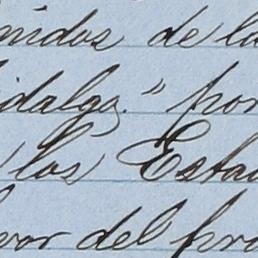 nidos de la
idalgo." por
los Esta
vor del pro